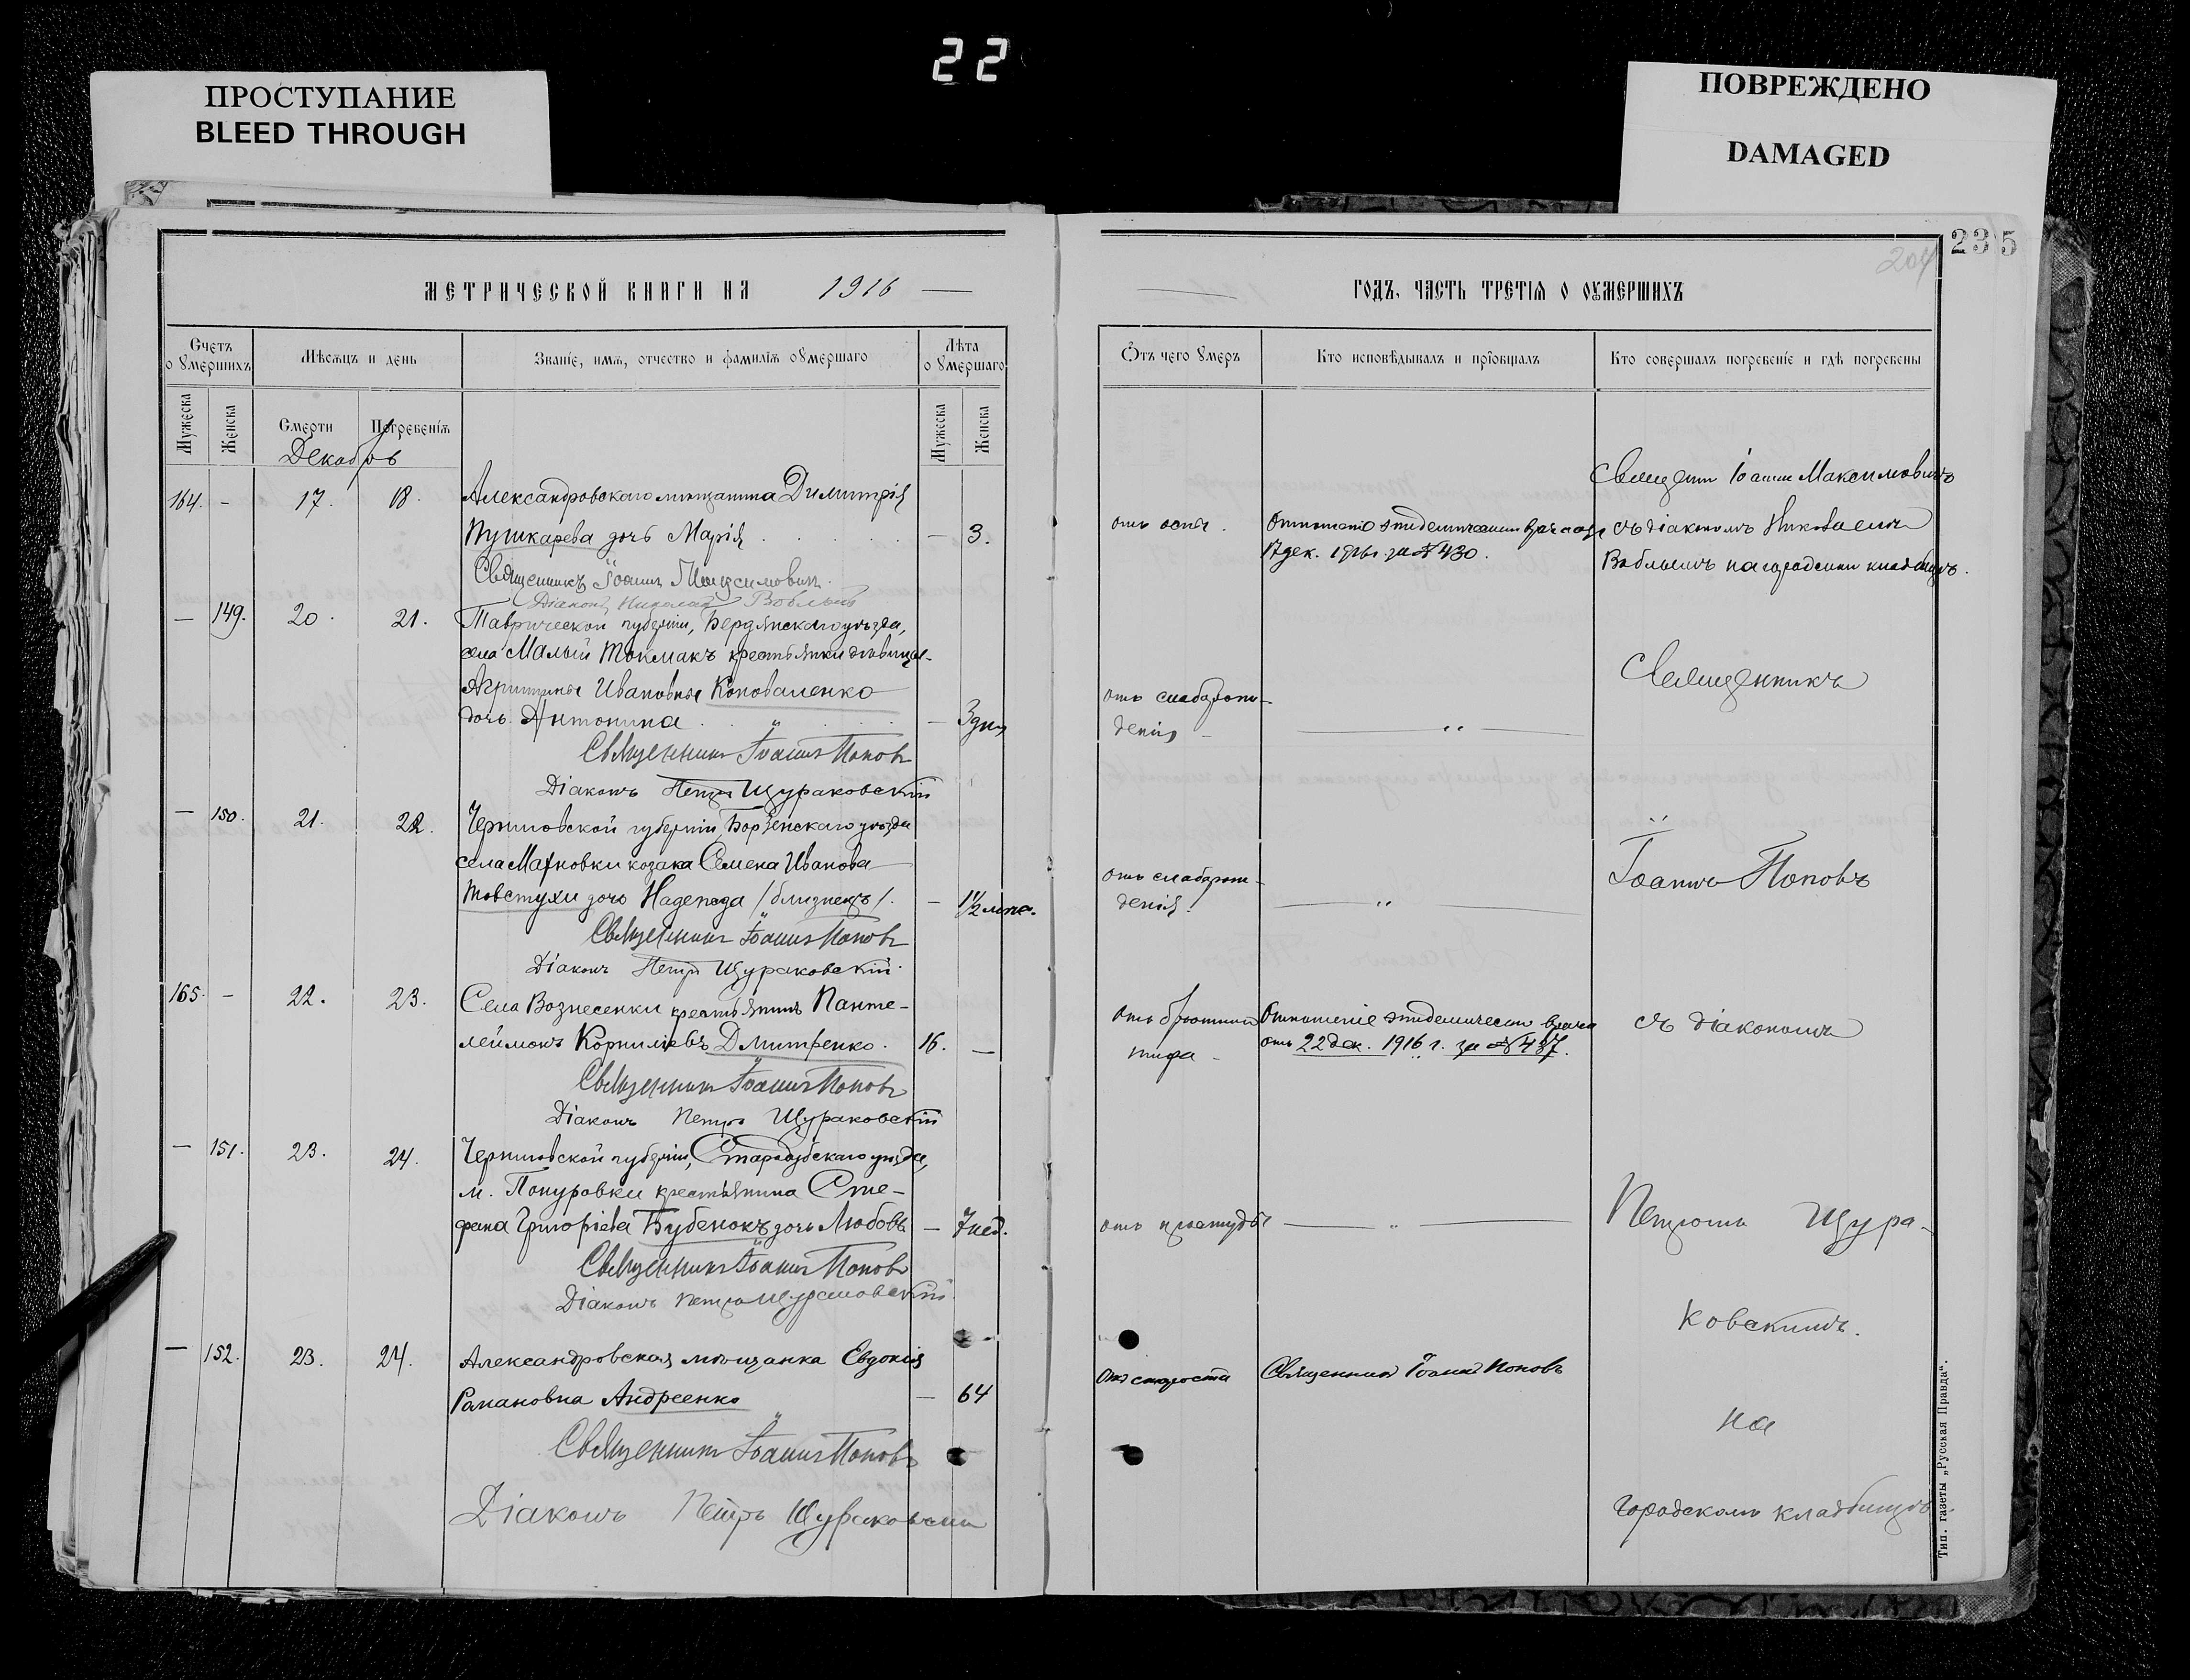 22
ПРОСТУПАНИЕ
BLEED THROUGH
ПОВРЕЖДЕНО
DAMAGED
235
204
МЕТРИЧЕСКОЙ КНИГИ НА 1916 —
Счетъ о ѹмершихъ
Мѣсѧцъ и день
Званіе, имѧ, отчество и фамиліѧ оѹмершаго
Лѣта о ѹмершаго
Мужеска
Женска
Смерти
Погребеніѧ
Мужеска
Женска
Декабрь
164. – 17. 18. Александровскаго мѣщанина Димитрія
Пушкарева дочь Марія — 3.
Священникъ Іоаннъ Максимовичъ
Діаконъ Николай Воблый
— 149. 20. 21. Таврической губерніи, Бердянскаго уѣзда,
села Малый Токмакъ крестьянки дѣвицы
Агрипины Ивановны Коноваленко
дочь Антонина — 3 дня
Священникъ Іоаннъ Поповъ
Діаконъ Петръ Щураковскій
— 150. 21. 22. Черниговской губерніи, Борзенскаго уѣзда
села козака Семена Иванова
Товстухи дочь Надежда /близнецъ/. — 1 1/2 мѣс.
Священникъ Іоаннъ Поповъ
Діаконъ Петръ Щураковскій.
165. – 22. 23. Села Вознесенки крестьянинъ Панте-
леймонъ Корниліевъ Дмитренко. 16. —
Священникъ Іоаннъ Поповъ
Діаконъ Петръ Щураковскій
— 151. 23. 24. Черниговской губерніи, Стародубскаго уѣзда,
м. Понуровки крестьянина Сте-
фана Григоріева Бубенокъ дочь Любовь — 7 нед.
Священникъ Іоаннъ Поповъ
Діаконъ Петръ Щураковскій
— 152. 23. 24. Александровская мѣщанка Евдокія
Романовна Андреенко — 64
Священникъ Іоаннъ Поповъ
Діаконъ Петръ Щураковскій
— ГОДЪ, ЧАСТЬ ТРЕТІѦ О ОѸМЕРШИХЪ
Ѿтъ чего ѹмеръ
Кто исповѣдывалъ и прїобщалъ
Кто совершалъ погребеніе и гдѣ погребены
отъ оспы.
Отношеніе эпидемическаго врача отъ
17 дек. 1916 г. за № 430.
Священ. Іоаннъ Максимовичъ
съ діакономъ Николаемъ
Воблымъ на городскомъ кладбищѣ.
отъ слаборож-
денія –
— „ —
Священникъ
отъ слаборож-
денія.
— „ —
Іоаннъ Поповъ
отъ брюшного
тифа –
Отношеніе эпидемическ. врача
отъ 22 дек. 1916 г. за № 437.
съ діакономъ
отъ простуды
— „ —
Петромъ Щура-
ковскимъ.
отъ старости
Священникъ Іоаннъ Поповъ
на
городскомъ кладбищѣ
Тип. газеты „Русская Правда“.